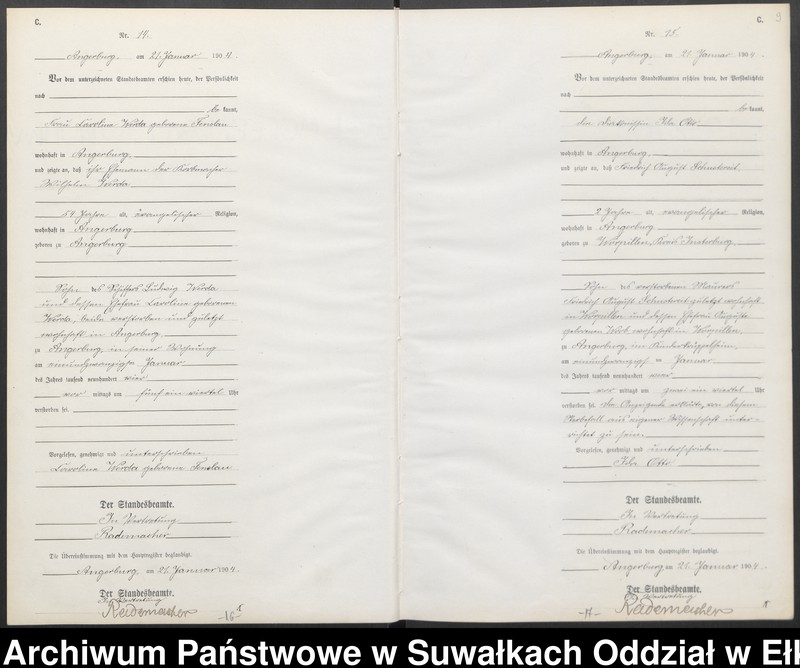 C.
Nr. 14.
Angerburg, am 21. Januar 1904.
Vor dem unterzeichneten Standesbeamten erschien heute, der Persönlichkeit
nach
be kannt,
Frau Caroline Wurda geborene Tenslau
wohnhaft in Angerburg
und zeigte an, daß ihr Ehemann der Korbmacher
Wilhelm Wurda
Jahre a. evangelischer Religion,
wohnhaft in Angerburg
geboren zu Angerburg
Sohn des Schiffers Ludwig Wurda
und dessen Ehefrau Caroline geborenen
Wurda, beide verstorben und zuletzt
wohnhaft in Angerburg
zu Angerburg, in seiner Wohnung
am Januar
des Jahres tausend neunhundert vier
vor mittags um fünf ein viertel Uhr
verstorben sei.
Vorgelesen, genehmigt und unterschrieben
Caroline Wurda geborene Tenslau
Der Standesbeamte.
In Vertretung
Rademacher
Die Übereinstimmung mit dem Hauptregister beglaubigt.
Angerburg am 21. Januar 1904.
Der Standesbeamte.
In Vertretung
Rademacher
-16-
C. 9
Nr. 15.
Angerburg, am 21. Januar 1904.
Vor dem unterzeichneten Standesbeamten erschien heute, der Persönlichkeit
nach
be kannt,
die Ida Otto
wohnhaft in Angerburg
und zeigte an, daß Friedrich August
2 Jahre a. evangelischer Religion,
wohnhaft in Angerburg
geboren zu Kreis Insterburg
Sohn des verstorbenen Maurers
Friedrich August zuletzt wohnhaft
in und dessen Ehefrau Auguste
geborenen wohnhaft in
zu Angerburg, im
am ten Januar
des Jahres tausend neunhundert vier
vor mittags um zwei ein viertel Uhr
verstorben sei. Die Anzeigende erklärte, von diesem
Sterbefall aus eigener Wissenschaft unter-
richtet zu sein
Vorgelesen, genehmigt und unterschrieben
Ida Otto
Der Standesbeamte.
In Vertretung
Rademacher
Die Übereinstimmung mit dem Hauptregister beglaubigt.
Angerburg am 21. Januar 1904.
Der Standesbeamte.
In Vertretung
Rademacher
-17-
Archiwum Państwowe w Suwałkach Oddział w Eł